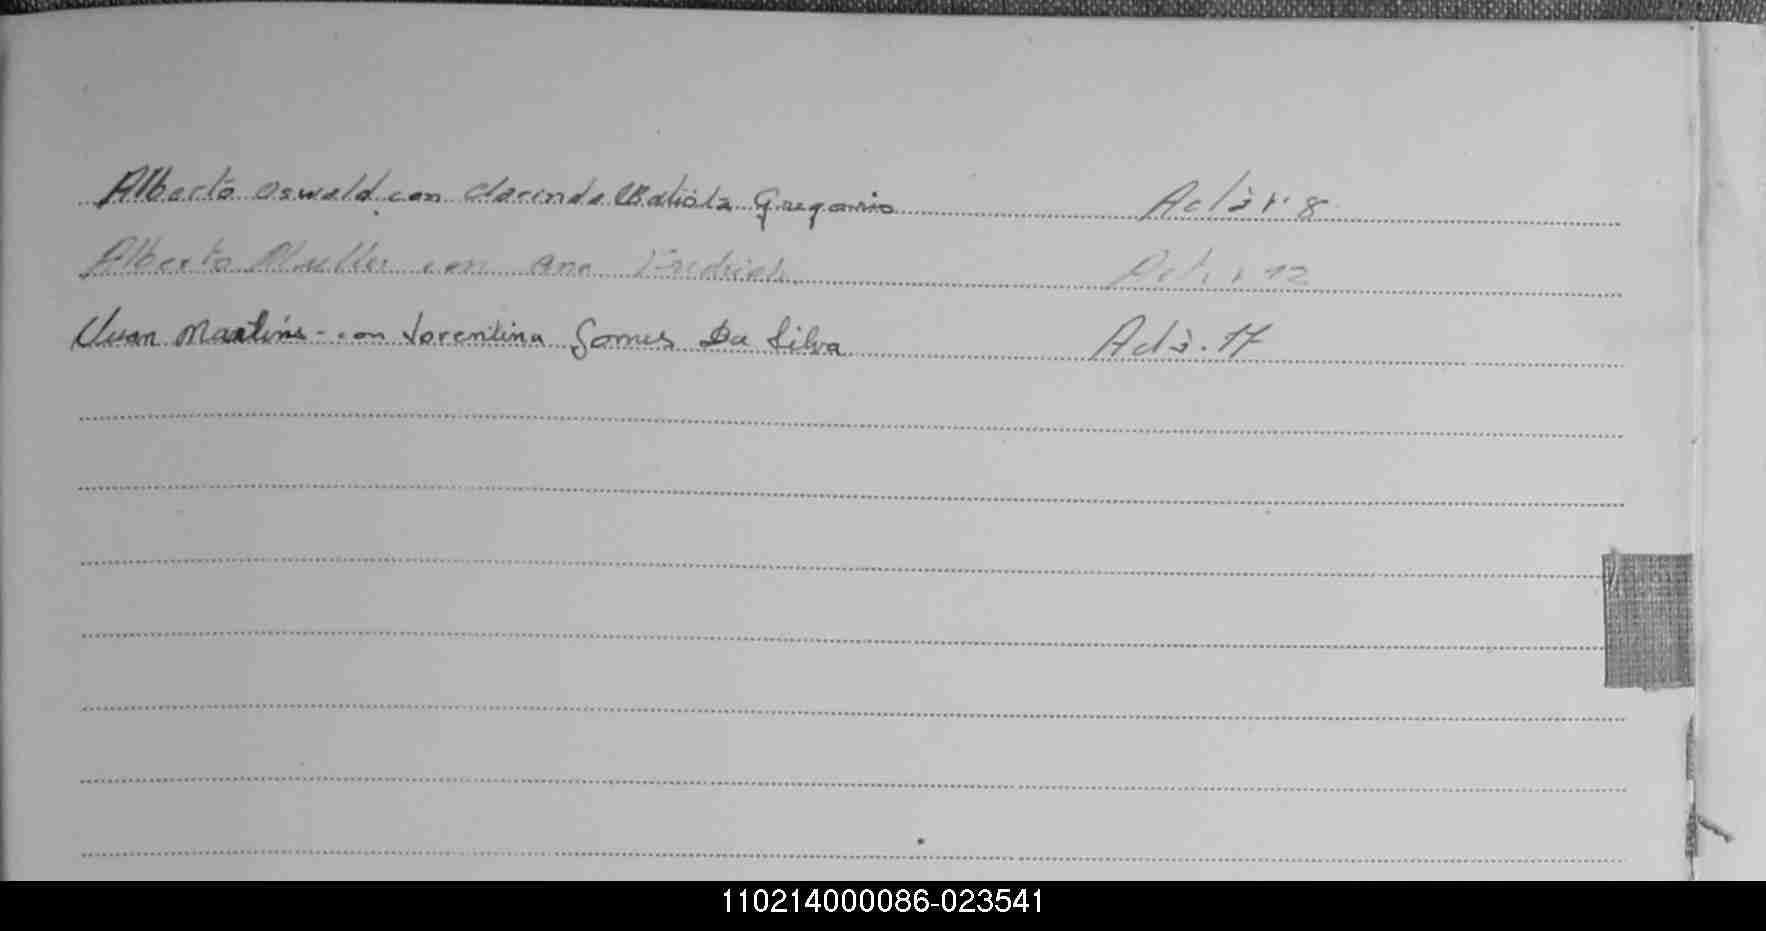 Alberto Oswald con Clarinda Batista Gregorio Acta nº 8
Alberto Muller con Ana Acta nº 12
Juan Martins - con Lorentina Gomes Da Silva Acta. 17
110214000086-023541